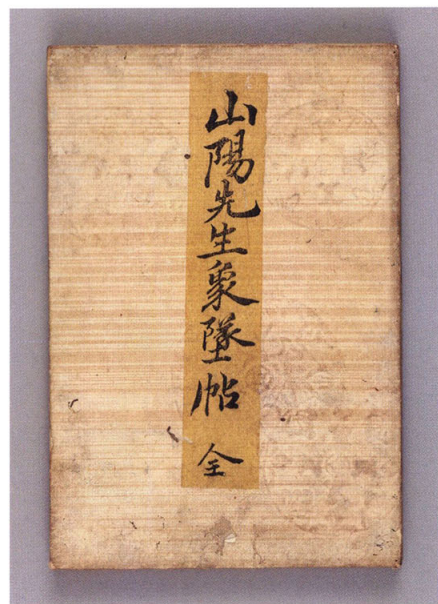 山陽先生象墜帖 全